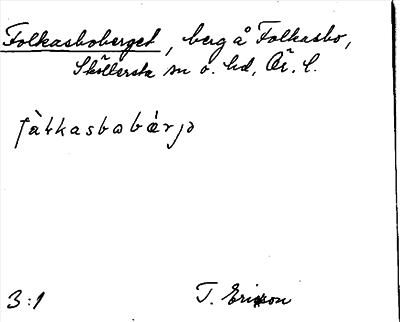 Folkasboberget, berg å Folkasbo,
Sköllersta sn o. hd, Ör. l.
3:1 T. Ericsson